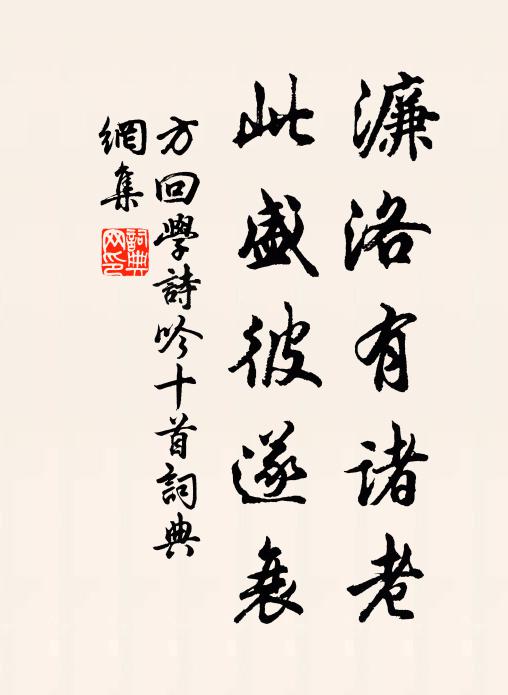 濂洛有诸老
此盛彼遂衰
方回學詩吟十首詞典
網集
詞典
网印